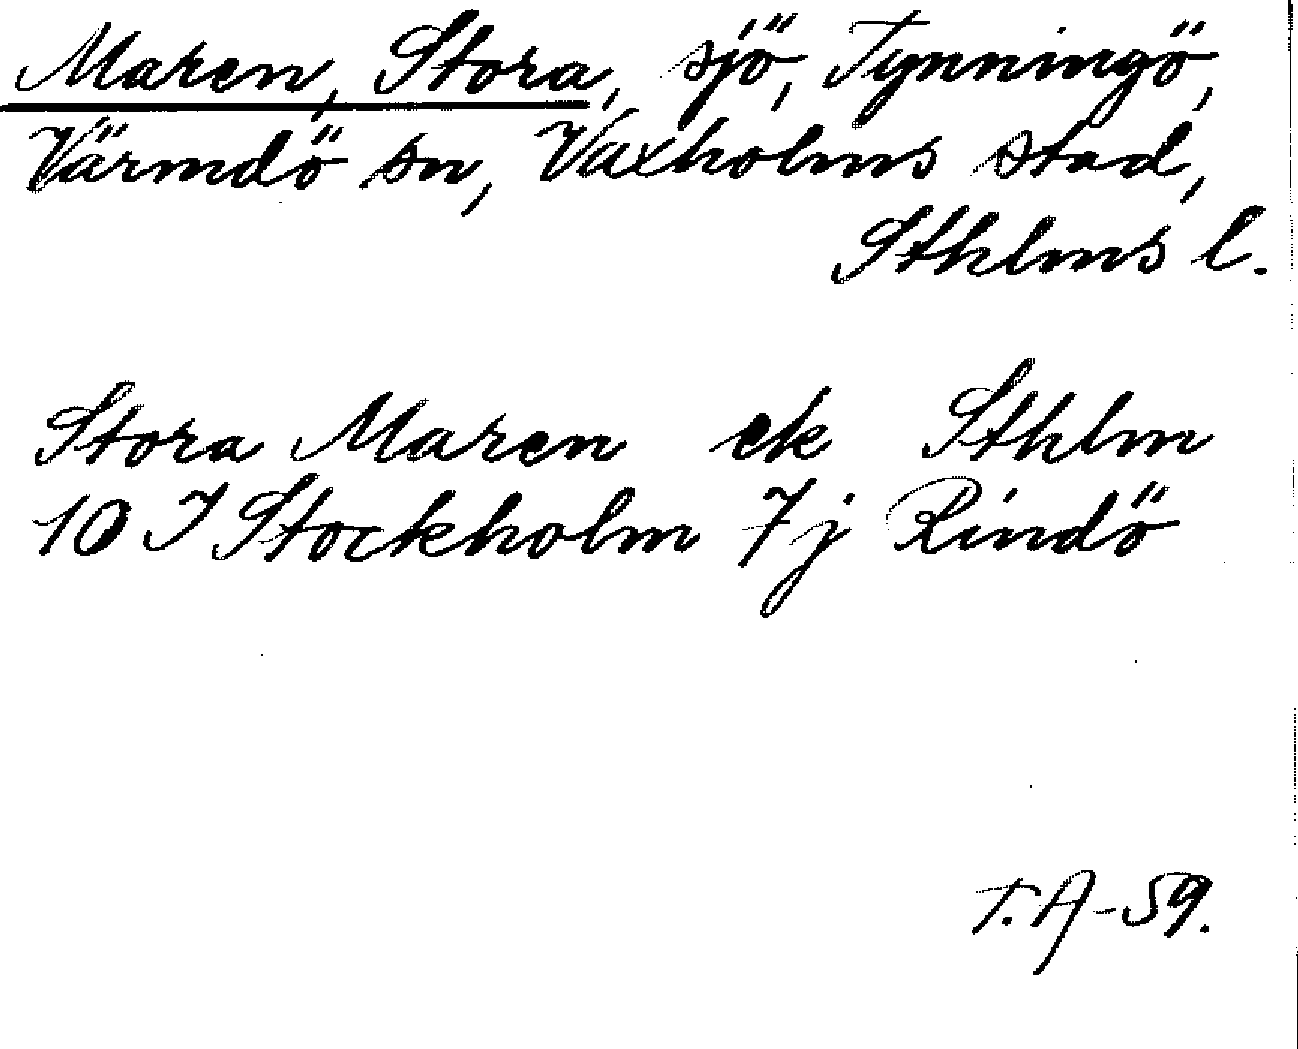 Maren, Stora, sjö, Tynningö,
Värmdö sn, Vaxholms stad,
Sthlms l.
Stora Maren ek Sthlm
10 I Stockholm 7j Rindö
T. A-59.